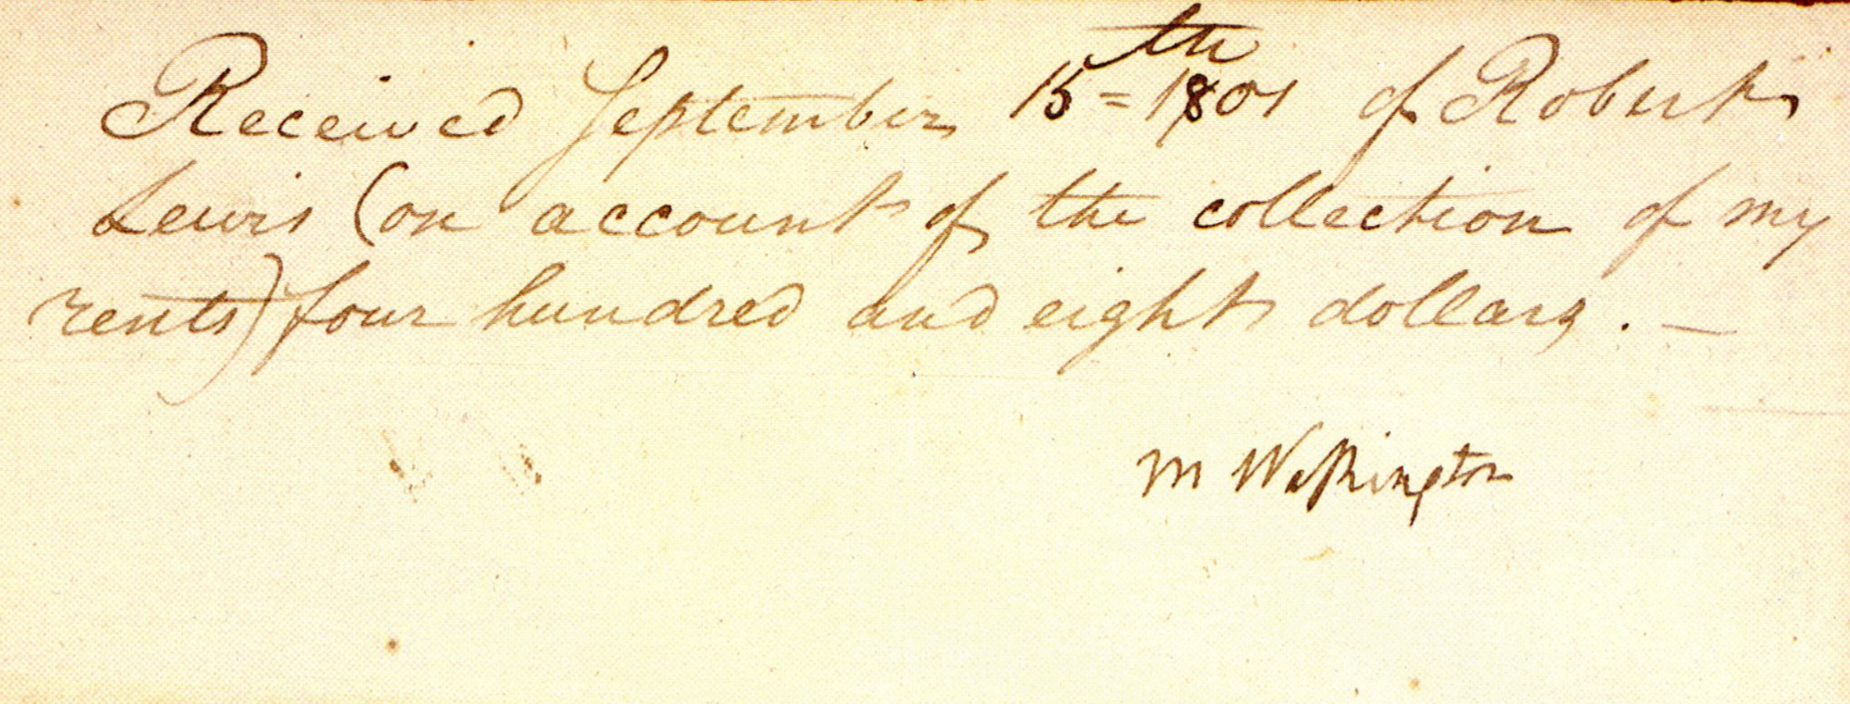 Received September 15th = 1801 of Robert
Lewis (on account of the collection of my
rents) four hundred and eight dollars. —
M Washington